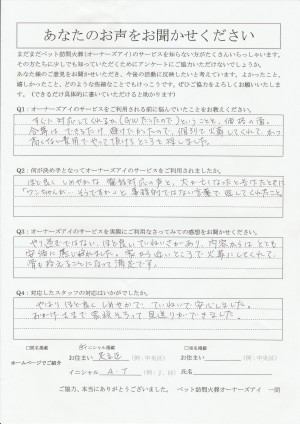 あなたのお声をお聞かせください
まだまだペット訪問火葬(オーナーズアイ)のサービスを知らない方がたくさんいらっしゃいます。
その方たちに少しでも知っていただくためにアンケートにご協力いただけないでしょうか。
あなた様のご意見をお聞かせいただき、今後の活動に反映したいと考えています。よかったこと、
嬉しかったこと、どのような些細なことでもけっこうです。ぜひご協力をよろしくお願いいたしま
す。(できるだけ具体的に書いていただけると助かります)
Q1:オーナーズアイのサービスをご利用される前に悩んでいたことをお教えください。
すぐに対応してくれるか(何しろ
ということと、価格の面。
合葬は できるだけ 避けたかったので、個別で火葬してくれて、かつ
高くない費用でやって頂けるところを探しました。
Q2:何が決め手となってオーナーズアイのサービスをご利用されましたか。
ほど良く しめやかな 電話対応の声と、犬が亡くなったと告げたときに
「ワンちゃんが…そうですか」と 事務的ではない言葉で 返してくれたこと。
Q3:オーナーズアイのサービスを実際にご利用なさってみての感想をお聞かせください。
やり過ぎではない、ほど良いていねいさがあり、内容からは とても
安価に感じられました。家から近いところで火葬してくれて、
骨も拾えることになって満足です。
Q4:対応したスタッフの対応はいかがでしたか。
やはり ほど良く しめやかで、ていねいで 安心しました。
おかげさまで 家族そろって 見送りができました。
□匿名掲載
☑イニシャル掲載
□実名掲載
ホームページでご紹介
お住まい
(例:中央区)
お住まい
(例:中央区)
イニシャル A・T (例:J.H)
お名前
ご協力、本当にありがとうございました。 ペット訪問火葬オーナーズアイ 一同